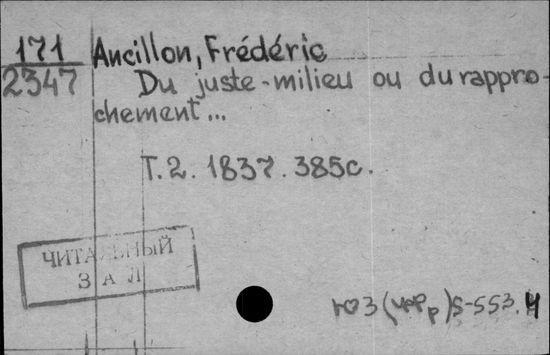 171
2347
Ancillon, Frédéric
Du juste-milieu ou du rappro-
chement...
Т.2. 1837. 385с.
ЧИТАЛЬНЫЙ
ЗАЛ